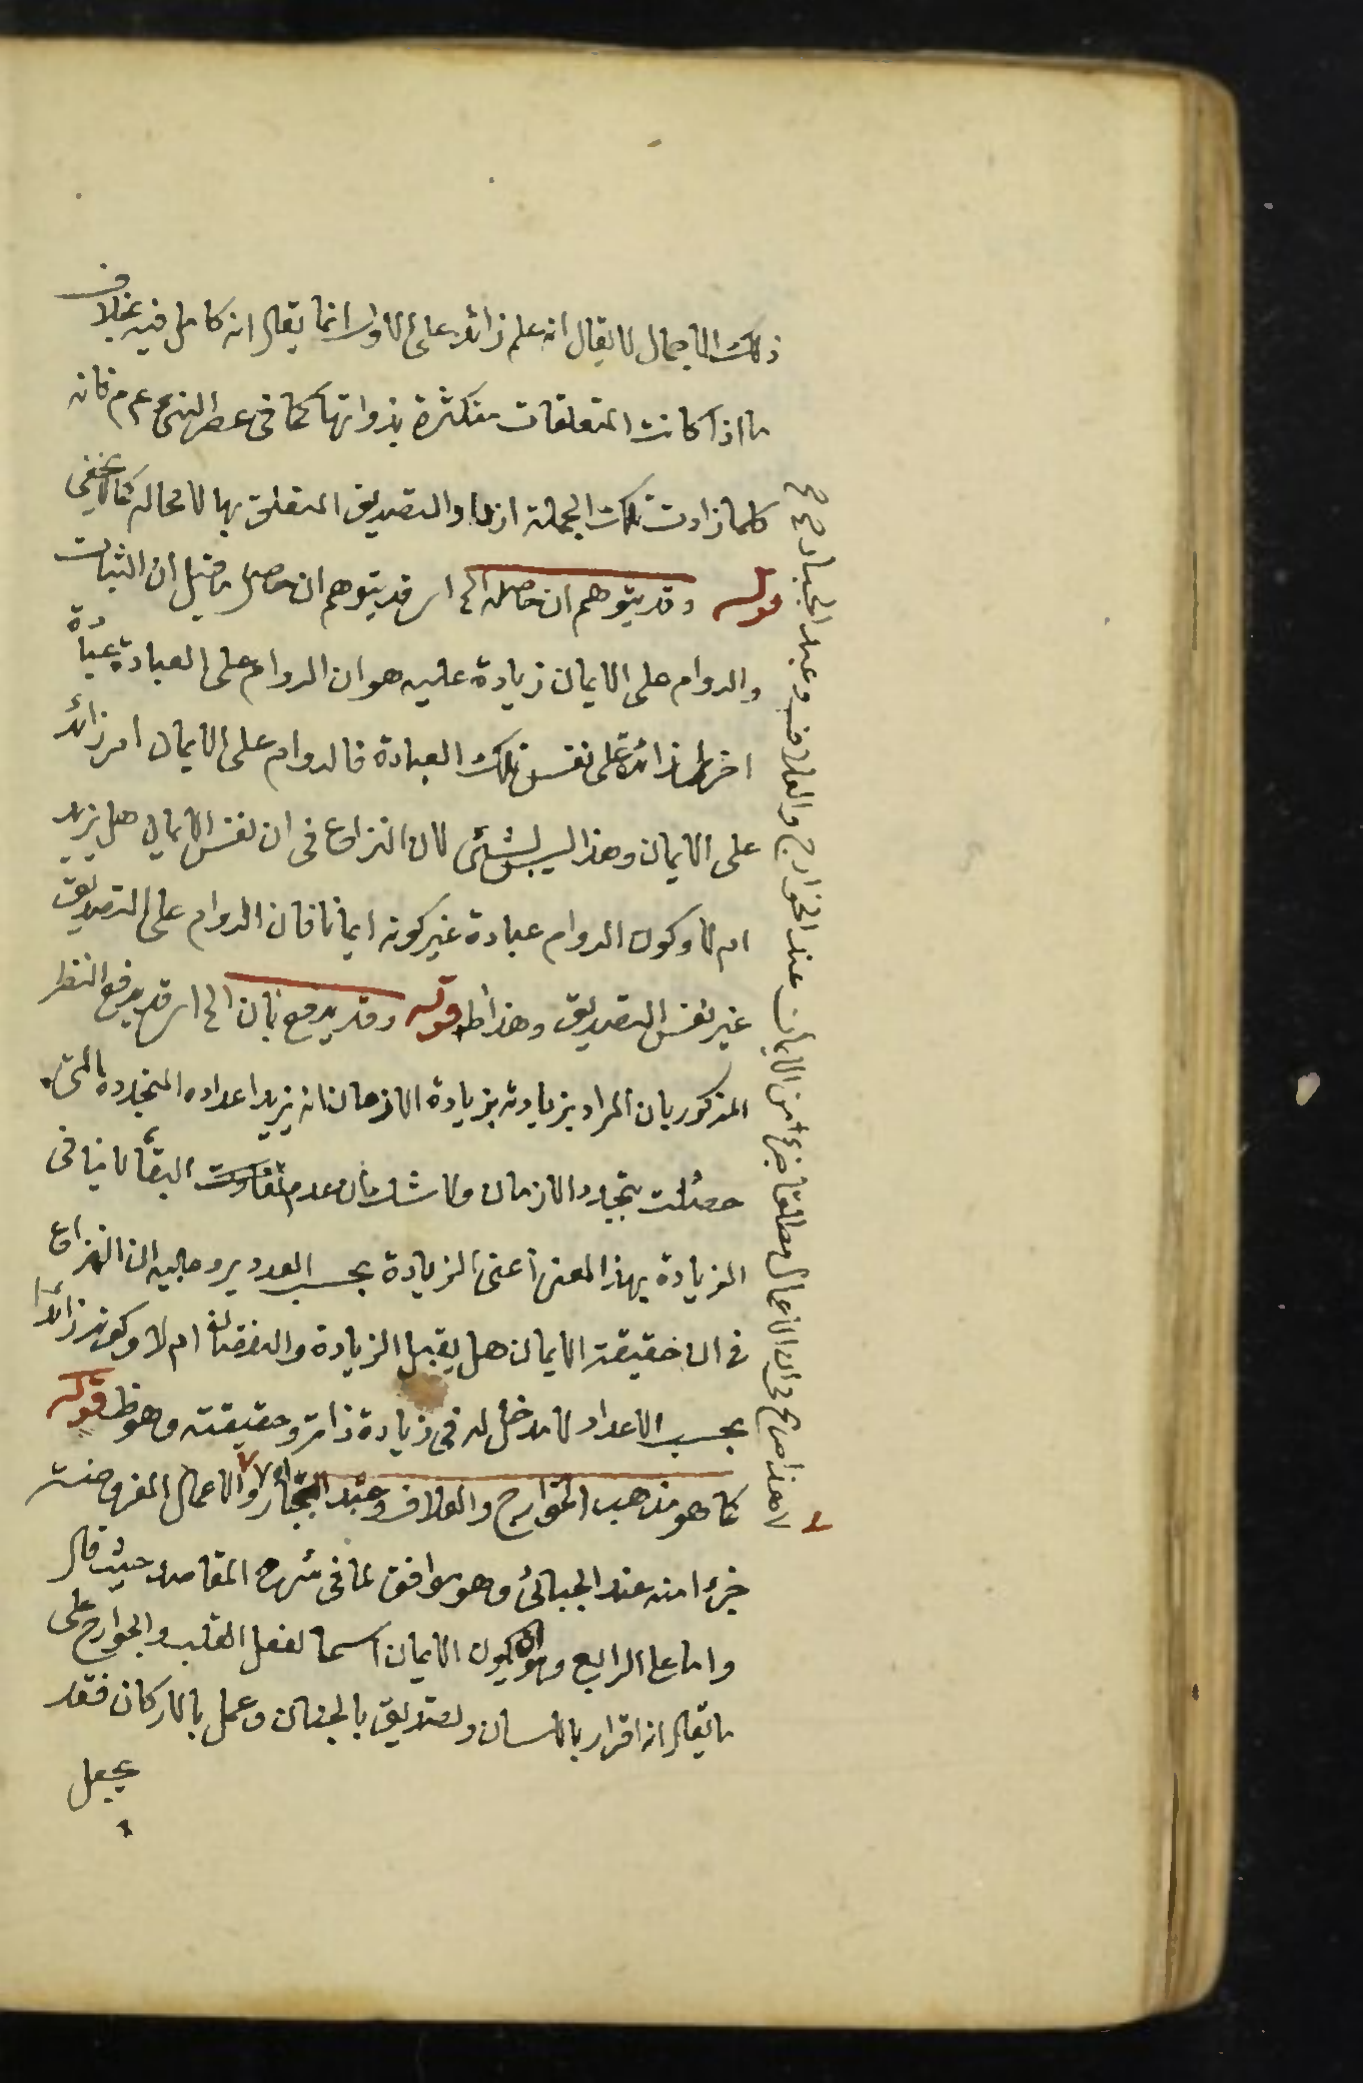 ذلك الاجمال لا يقال انه علم زائد على الاول انما يقال انه كامل فيه بخلاف
ما اذا كانت المتعلقات متكثرة بذواتها كما فى عصر النبى عم م فانه
كلما زادت تلك الجملة ازداد التصديق المتعلق بها لا محالة كما لا يخفى
قوله وقد يتوهم ان حاصله الخ اى قد يتوهم ان حاصل ما قيل ان الثبات
والدوام على الايمان زيادة عليه هو ان الدوام على العبادة عبادة
اخرى زائدة على نفس تلك العبادة فالدوام على الايمان امر زائد
على الايمان وهذا ليس بشئ لان النزاع فى ان نفس الايمان هل يزيد
ام لا وكون الدوام عبادة غير كونه ايمانا فان الدوام على التصديق
غير نفس التصديق وهذا ظ قوله وقد يدفع بان الخ اى قد يدفع النظر
المذكور بان المراد بزيادته بزيادة الازمان انه يزيد اعداده المتجددة التى
حصلت بتجدد الازمان ولا شك بان عدم البقاء لا ينافى
الزيادة بهذا المعنى اعنى الزيادة بحسب العدد يرد عليه ان النزاع
فى ان حقيقة الايمان هل يقبل الزيادة والنقصان ام لا وكونه زائدا
بحسب الاعداد لا مدخل له فى زيادة ذاته وحقيقته وهو ظ قوله
كما هو مذهب الخوارج والعلاف وعبد الجبار الاعمال المفروضة
جزء منه عند الجبائى وهو موافق لما فى شرح المقاصد حيث قال
واما على الرابع وهو ان يكون الايمان اسما لفعل القلب والجوارح على
ما يقال انه اقرار باللسان وتصديق بالجنان وعمل بالاركان فقد
يجعل
هذا صريح فى ان الاعمال مطلقا جزء من الايمان عند الخوارج والعلاف وعبد الجبار